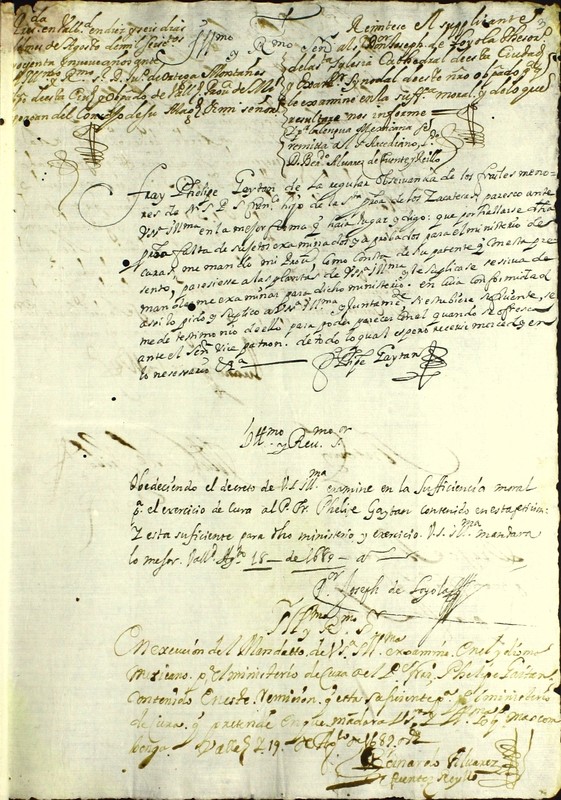 en Vall.d en diez y seis dias
del mes de Agosto de mil seiscientos
ochenta y nueve años que
Yllmo y Rmo S. D. Ju.º de Ortega Montañes
Obpo desta Ciu.d y obpado de Vall.d Prov.a de Mech.
del Consejo de su Mag.d &.a mi señor
Yllmo y Rmo Señ.or
Remitese el supplicante
al S.r Joseph de Loyola
de la S.ta Iglesia Cathedral de esta Ciudad
y Exam.or Synodal de este nro obispado q.e
lo examine en la suff.a moral, y de lo que
resultare nos informe
y en la lengua Mexicana se
remita al
D. Ber.do Alvarez de fuente y Reillo
Fray Phelipe Gaytan de la regular Observancia de los frailes meno-
res de N. S. P. S. Fran.co hijo de la S.ta prov.a de los Zacatecas, paresco ante
Vss.a Illma en la mejor forma q.e haya lugar y digo: que por hallarse dicha
prov.a falta de sujetos examinados y aprobados para el ministerio de
cura, me mando mi Prov.l como consta de su patente q.e en esta pre-
sento, paresiese a las plantas de Vss.a Illma y le suplicase se sirva de
mandar me examinar para dicho ministerio. en cuia conformidad
assi lo pido y suplico a Vss.a Illma y juntam.te si estubiere suficiente, se
me de testimonio de ello para poder pareser con el quando se ofresca
ante el Señ.r Vice patron. de todo lo qual espero resevir merced y en
lo nesesario &.a
Phelipe Gaytan
Yllmo y Rev.mo S.or
Obedeciendo el decreto de V.S. Ill.ma examine en la Sufficiencia moral
p.a el exercicio de Cura al P. Fr. Phelipe Gaytan contenido en esta peticion:
y esta suficiente para dho ministerio y exercicio. V.S. Ill.ma mandara
lo mejor. Vall.d Ag.to 18 de 1689 a.s
Joseph de Loyola
Yll.mo y R.mo S.r
En execucion del Mandatto de V.S.a Ill.ma examine en el ydioma
Mexicano p.a el ministerio de cura al P.e fray Phelipe Gaitan
Contenido en este Remision. y esta suficiente p.a el ministerio
de cura q.e pretende. mandara lo q.e mas con
benga. Valld y 19 de Ag.to de 1689 a.s
Bernardo Alvarez
fuente y Reyllo